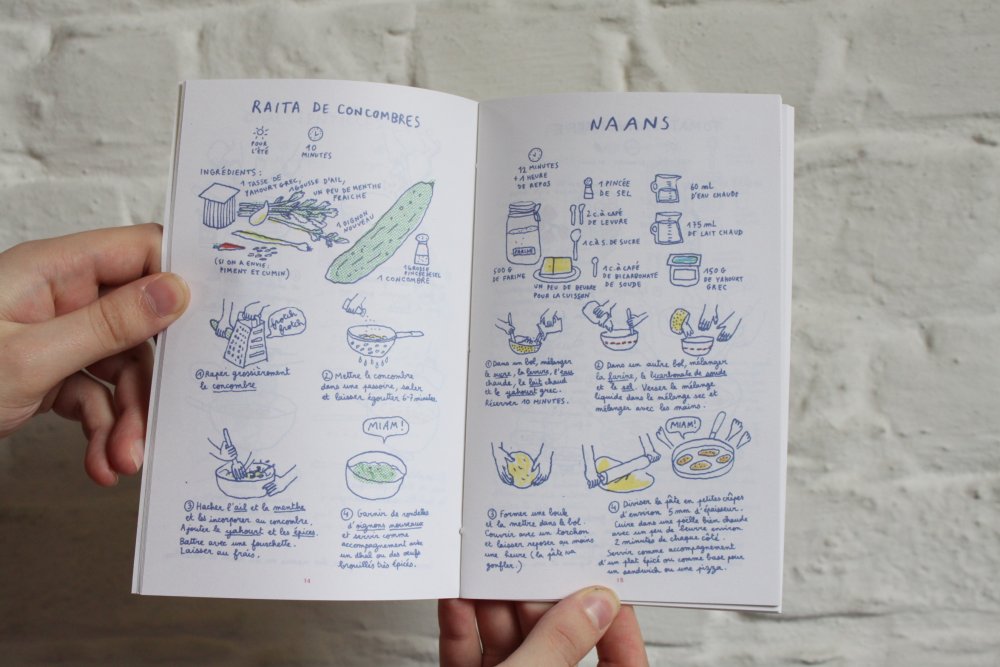 RAITA DE CONCOMBRES
POUR
L'ÉTÉ
10
MINUTES
INGRÉDIENTS :
1 TASSE DE
YAHOURT GREC,
1 GOUSSE D'AIL,
UN PEU DE MENTHE
FRAICHE
1 OIGNON
NOUVEAU
(SI ON A ENVIE:
PIMENT ET CUMIN)
1 GROSSE
PINCÉE DE SEL
1 CONCOMBRE
frotch
frotch
① Raper grossièrement
le concombre
② Mettre le concombre
dans une passoire, saler
et laisser égoutter 6-7 minutes
MIAM!
③ Hacher l'ail et la menthe
et les incorporer au concombre.
Ajouter le yahourt et les épices.
Battre avec une fourchette.
Laisser au frais.
④ Garnir de rondelles
d'oignons nouveaux
et servir comme
accompagnement avec
un dhal ou des œufs
brouillés très épicés.
14
NAANS
12 MINUTES
+ 1 HEURE
DE REPOS
1 PINCÉE
DE SEL
60 mL
D'EAU CHAUDE
2 c. à CAFÉ
DE LEVURE
175 mL
DE LAIT CHAUD
1 c. à S. DE SUCRE
FARINE
500 G
DE FARINE
UN PEU DE BEURRE
POUR LA CUISSON
1 c. à CAFÉ
DE BICARBONATE
DE SOUDE
150 G
DE YAHOURT
GREC
① Dans un bol, mélanger
le sucre, la levure, l'eau
chaude, le lait chaud
et le yahourt grec.
Réserver 10 MINUTES.
② Dans un autre bol, mélanger
la farine, le bicarbonate de soude
et le sel. Verser le mélange
liquide dans le mélange sec et
mélanger avec les mains.
MIAM!
③ Former une boule
et la mettre dans le bol.
Couvrir avec un torchon
et laisser reposer au moins
une heure (la pâte va
gonfler.)
④ Diviser la pâte en petites crêpes
d'environ 5 mm d'épaisseur.
Cuire dans une poêlle bien chaude
avec un peu de beurre environ
2 minutes de chaque côté.
Servir comme accompagnement
d'un plat épicé ou comme base pour
un sandwich ou une pizza.
15